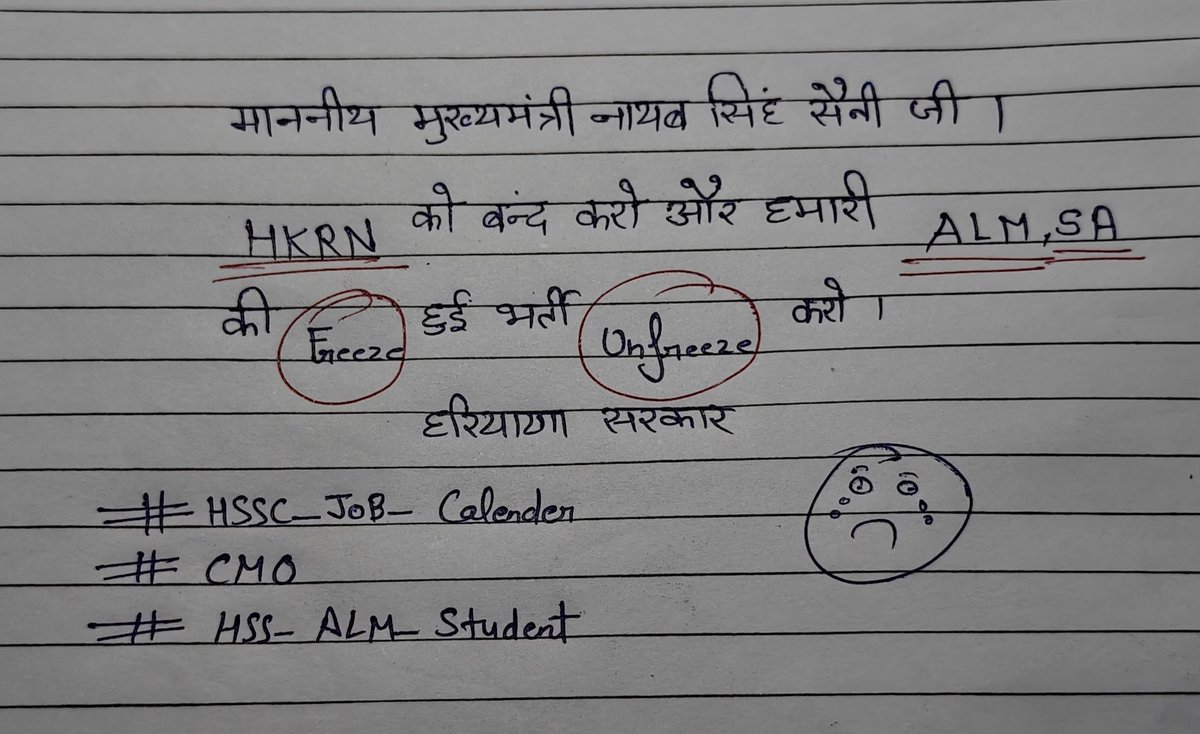 माननीय मुख्यमंत्री नायब सिंह सैनी जी ।
HKRN को बन्द करो और हमारी ALM, SA
की Freeze हुई भर्ती Unfreeze करो ।
हरियाणा सरकार
# HSSC_JOB_ Calender
# CMO
# HSS_ ALM_ Student